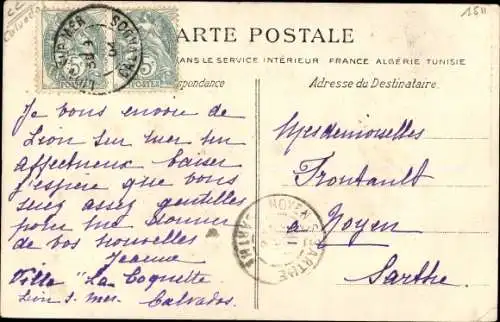 CC
Calvados
1511
CARTE POSTALE
DANS LE SERVICE INTÉRIEUR FRANCE ALGÉRIE TUNISIE
pondance
Adresse du Destinataire.
5 5
POSTES POSTES
LUC-SUR-MER
CALVADOS
Je vous envoie de
Lion sur mer un
affectueux baiser
j'espère que vous
serez assez gentilles
pour me donner
de vos nouvelles
Jeanne
Villa "La Coquette
Lion s. Mer. Calvados.
Mesdemoiselles
Frontault
à Noyen
Sarthe
NOYEN
SARTHE
SARTHE